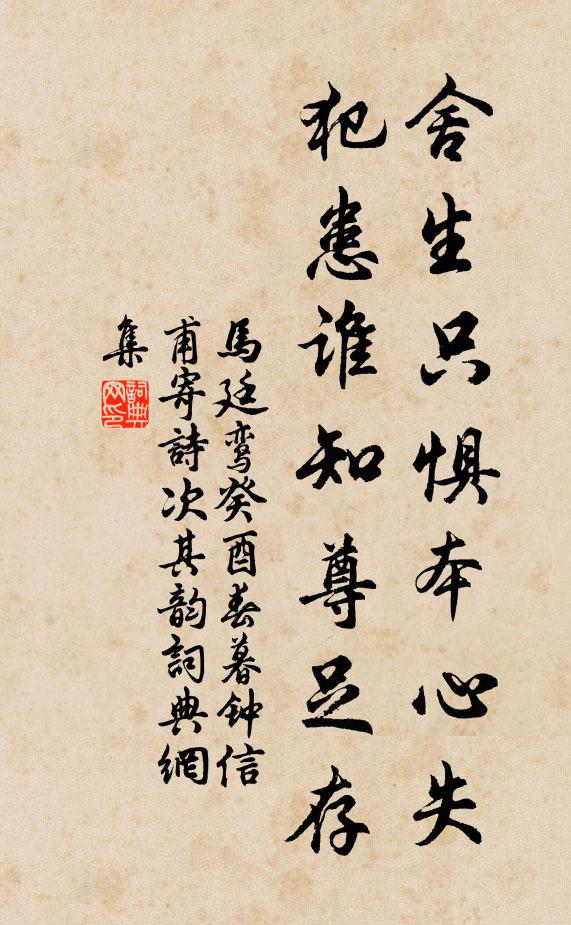 舍生只惧本心失
犯患谁知尊足存
馬廷鸾癸酉春暮钟信
甫寄詩次其韵詞典網
集
詞典
网印